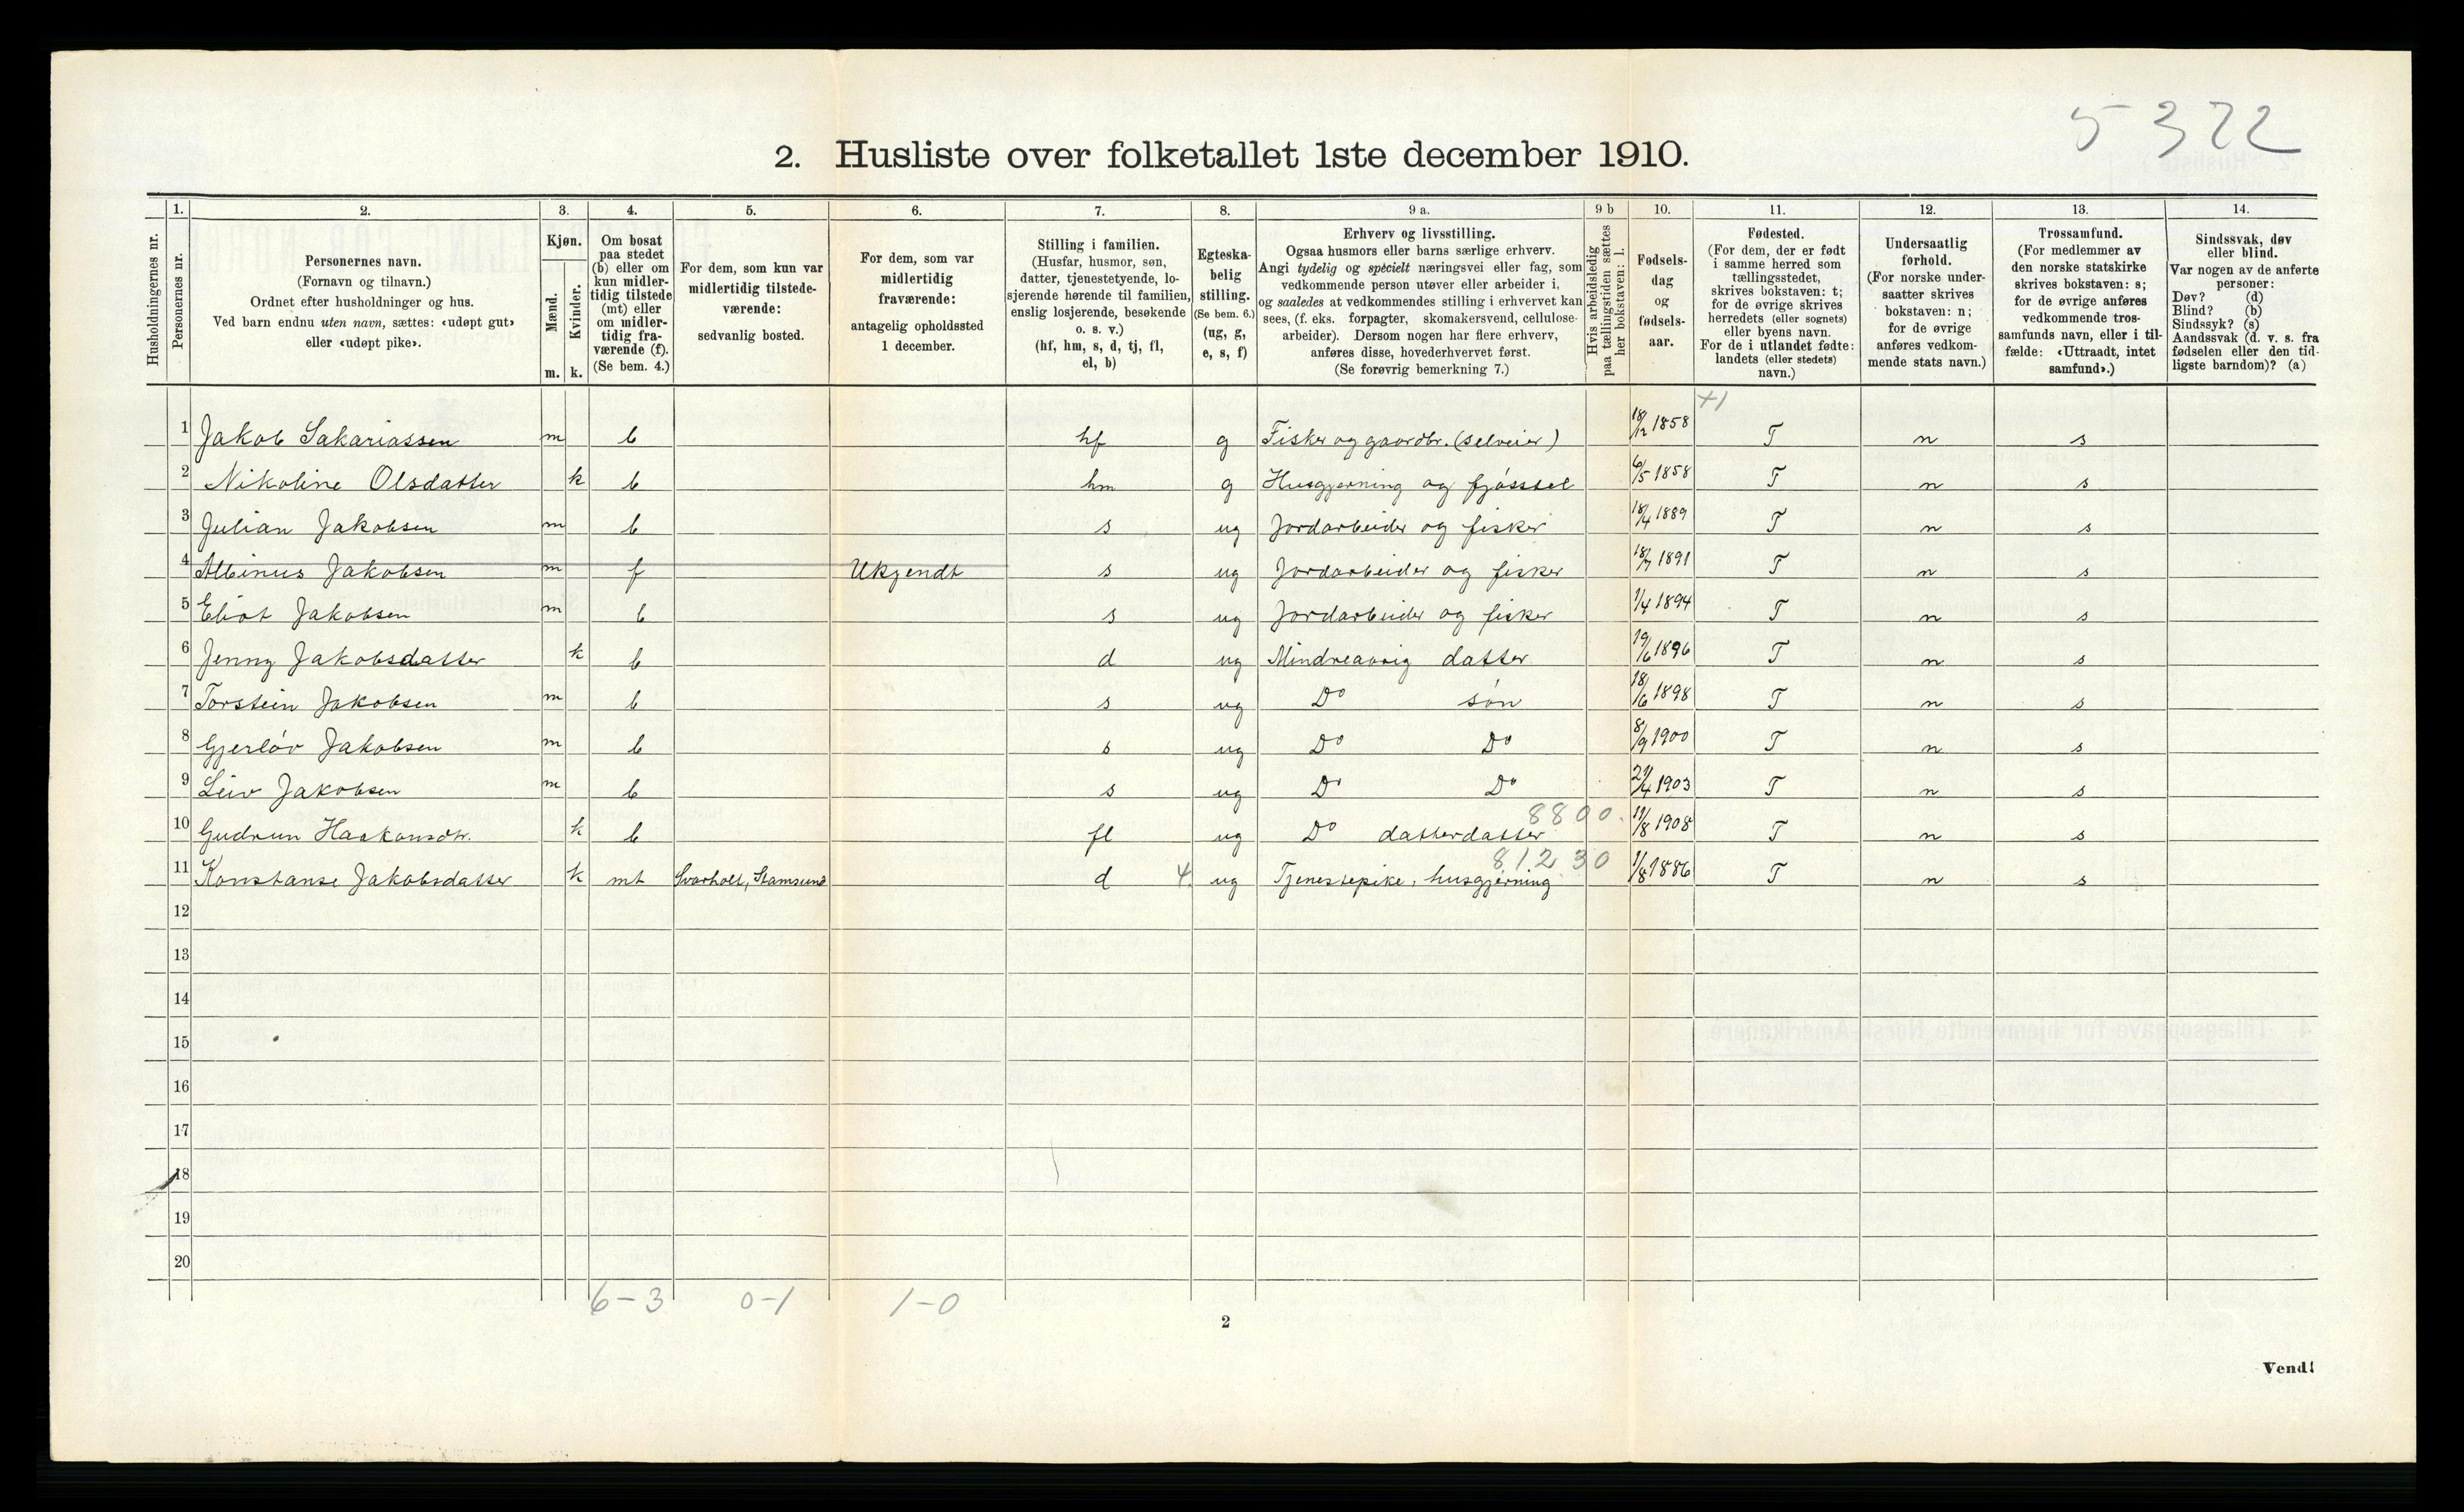 5 322
2. Husliste over folketallet 1ste december 1910.
Husholdningernes nr.
1. Personernes nr.
2. Personernes navn.
(Fornavn og tilnavn.)
Ordnet efter husholdninger og hus.
Ved barn endnu uten navn, sættes: «udøpt gut»
eller «udøpt pike».
3. Kjøn.
Mænd. m.
Kvinder. k.
4. Om bosat
paa stedet
(b) eller om
kun midler-
tidig tilstede
(mt) eller
om midler-
tidig fra-
værende (f).
(Se bem. 4.)
5. For dem, som kun var
midlertidig tilstede-
værende:
sedvanlig bosted.
6. For dem, som var
midlertidig
fraværende:
antagelig opholdssted
1 december.
7. Stilling i familien.
(Husfar, husmor, søn,
datter, tjenestetyende, lo-
sjerende hørende til familien,
enslig losjerende, besøkende
o. s. v.)
(hf, hm, s, d, tj, fl,
el, b)
8. Egteska-
belig
stilling.
(Se bem. 6.)
(ug, g,
e, s, f)
9 a. Erhverv og livsstilling.
Ogsaa husmors eller barns særlige erhverv.
Angi tydelig og specielt næringsvei eller fag, som
vedkommende person utøver eller arbeider i,
og saaledes at vedkommendes stilling i erhvervet kan
sees, (f. eks. forpagter, skomakersvend, cellulose-
arbeider). Dersom nogen har flere erhverv,
anføres disse, hovederhvervet først.
(Se forøvrig bemerkning 7.)
9 b Hvis arbeidsledig
paa tællingstiden sættes
her bokstaven: l.
10. Fødsels-
dag
og
fødsels-
aar.
11. Fødested.
(For dem, der er født
i samme herred som
tællingsstedet,
skrives bokstaven: t;
for de øvrige skrives
herredets (eller sognets)
eller byens navn.
For de i utlandet fødte:
landets (eller stedets)
navn.)
12. Undersaatlig
forhold.
(For norske under-
saatter skrives
bokstaven: n;
for de øvrige
anføres vedkom-
mende stats navn.)
13. Trossamfund.
(For medlemmer av
den norske statskirke
skrives bokstaven: s;
for de øvrige anføres
vedkommende tros-
samfunds navn, eller i til-
fælde: «Uttraadt, intet
samfund».)
14. Sindssvak, døv
eller blind.
Var nogen av de anførte
personer:
Døv? (d)
Blind? (b)
Sindssyk? (s)
Aandssvak (d. v. s. fra
fødselen eller den tid-
ligste barndom)? (a)
+1
1 Jakob Sakariassen m b hf g Fisker og gaardbr. (selveier) 18/12 1858 T n s
2 Nikoline Olsdatter k b hm g Husgjerning og fjøsstel 6/5 1858 T n s
3 Julian Jakobsen m b s ug Jordarbeider og fisker 18/4 1889 T n s
4 Albinus Jakobsen m f Ukjendt s ug Jordarbeider og fisker 18/7 1891 T n s
5 Eliot Jakobsen m b s ug Jordarbeider og fisker 1/4 1894 T n s
6 Jenny Jakobsdatter k b d ug Mindreaarig datter 19/6 1896 T n s
7 Torstein Jakobsen m b s ug Do søn 18/6 1898 T n s
8 Gjerløv Jakobsen m b s ug Do Do 8/9 1900 T n s
9 Leiv Jakobsen m b s ug Do Do 21/4 1903 T n s
8800.
10 Gudrun Haakonsdtr. k b fl ug Do datterdatter 11/8 1908 T n s
81230
11 Konstanse Jakobsdatter k mt Svarholt, Stamsund d 4. ug Tjenestepike, husgjerning 1/8 1886 T n s
12
13
14
15
16
17
18
19
20
6-3 0-1 1-0
2
Vend!